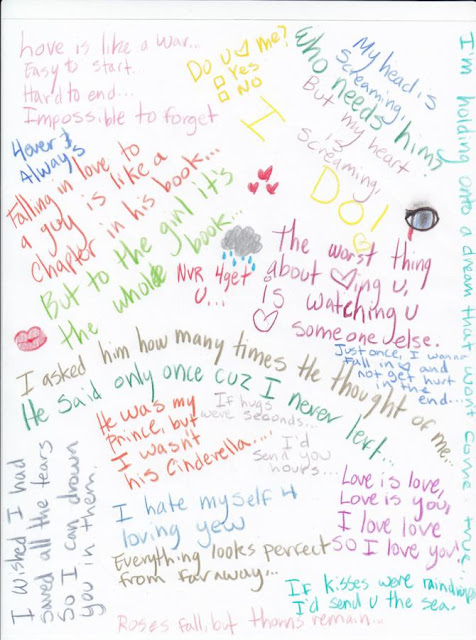 Love is like a war...
Easy to start.
Hard to end...
Impossible to forget
Do u me?
Yes
No
I
My head is
Screaming,
Who needs him?
But my heart
is
Screaming,
I
DO!
I'm holding onto a dream that won't come true
4ever &
Always
Falling in love to
a guy is like a
chapter in his book...
But to the girl it's
the whole book...
NVR 4get
U...
The worst thing
about ing u,
is watching u
someone else.
Just once, I wanna
fall in and
not get hurt
in the
end...
I asked him how many times He thought of me...
He said only once cuz I never left...
He was my
Prince, but
I wasn't
his Cinderella....
If hugs
were seconds...
I'd
send you
hours...
I wished I had
saved all the tears
So I can drown
you in them.
I hate myself 4
loving yew
Love is love,
Love is you,
I love love
SO I love you!
Everything looks perfect
from far away...
If kisses were raindrops
I'd send u the sea.
Roses fall, but thorns remain...